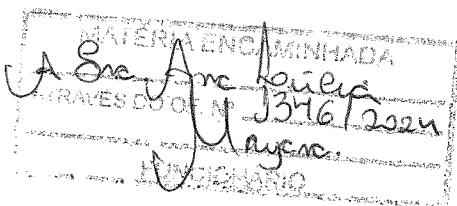 MATÉRIA ENCAMINHADA
A Sra Ana Lúcia
ATRAVÉS DO OF. Nº 1346/2024
Mayara.
FUNCIONÁRIO